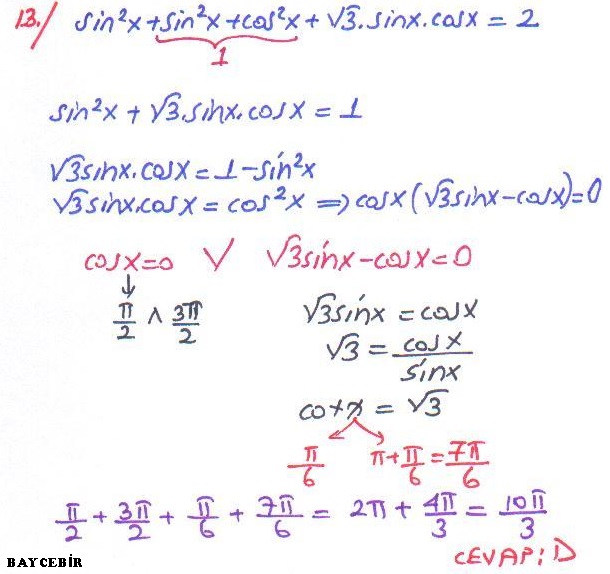 13./ sin²x + sin²x + cos²x + √3.sinx.cosx = 2
1
sin²x + √3.sinx.cosx = 1
√3sinx.cosx = 1-sin²x
√3sinx.cosx = cos²x ⇒ cosx(√3sinx-cosx)=0
cosx=0 ∨ √3sinx-cosx=0
π/2 ∧ 3π/2
√3sinx = cosx
√3 = cosx/sinx
cotx = √3
π/6 π+π/6=7π/6
π/2 + 3π/2 + π/6 + 7π/6 = 2π + 4π/3 = 10π/3
CEVAP: D
BAYCEBİR